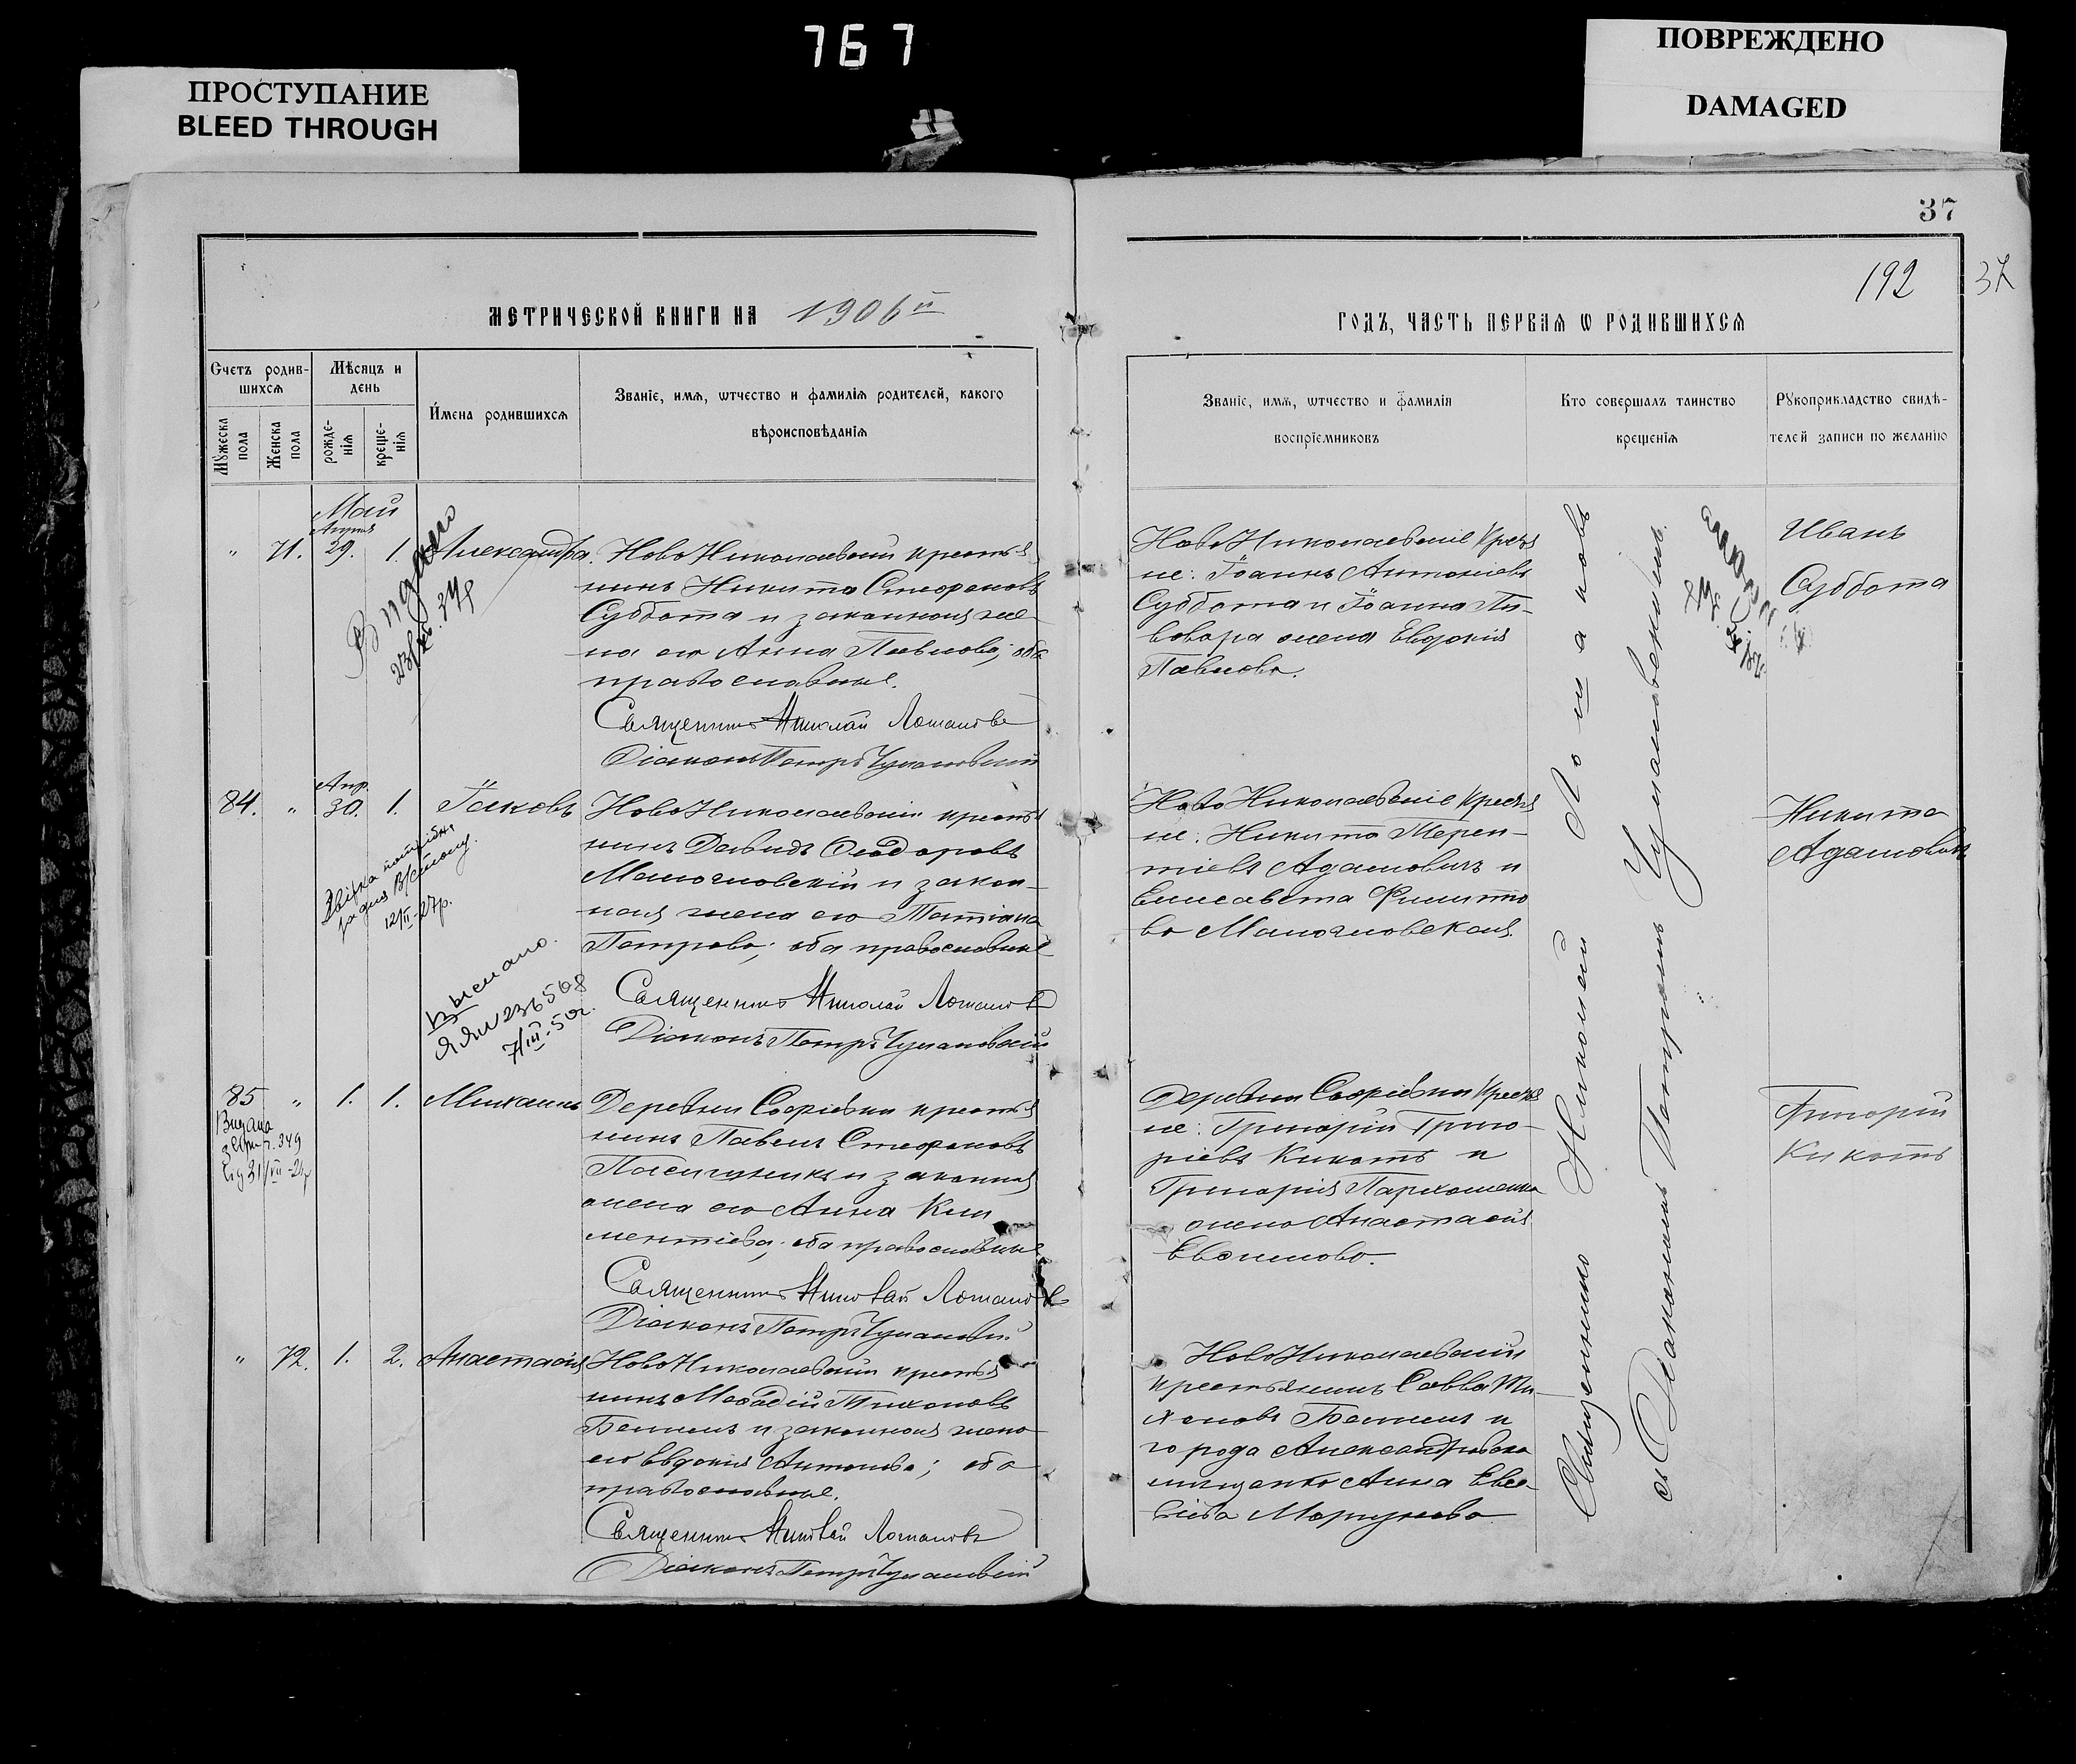 767
ПРОСТУПАНИЕ
BLEED THROUGH
ПОВРЕЖДЕНО
DAMAGED
37
192
37
МЕТРИЧЕСКОЙ КНИГИ НА 1906й
ГОДЪ, ЧАСТЬ ПЕРВАѦ Ѡ РОДИВШИХСѦ
Счетъ родив-
шихсѧ
Мѣсяцъ и
день
Мꙋжеска
пола
Женска
пола
рожде-
нія
креще-
нія
Имена родившихсѧ
Званіе, имѧ, ѡтчество и фамилія родителей, какого
вѣроисповѣданія
Званіе, имѧ, ѡтчество и фамилія
воспріемниковъ
Кто совершалъ таинство
крещенія
Рꙋкоприкладство свидѣ-
телей записи по желанію
Май
Апреля
" 71. 29. 1. Александра.
НовоНиколаевскій крестья
нинъ Никита Стефановъ
Суббота и законная же
на его Анна Павлова; оба
православные.
Священникъ Николай Лошаковъ
Діаконъ Петръ Чулановскій
НовоНиколаевскіе крестья
не: Іоаннъ Антоніевъ
Суббота и Іоанна Пи-
вовара жена Евдокія
Павлова.
Иванъ
Суббота
Апр.
84. " 30. 1. Іаковъ
НовоНиколаевскій крестья
нинъ Давидъ Ѳеодоровъ
Малогловскій и закон-
ная жена его Татіана
Петрова; оба православные
Священникъ Николай Лошаковъ
Діаконъ Петръ Чулановскій
12/II-27р.
7/III-50г.
НовоНиколаевскіе крестья
не: Никита Терен-
тіевъ Адамовичъ и
Елисавета Филиппо
ва Малогловская.
Никита
Адамовичъ
85 " 1. 1. Михаилъ
Видана
Деревни Софіевки крестья
нинъ Павелъ Стефановъ
Пасичникъ и законная
жена его Анна Кли
ментіева; оба православные
Священникъ Николай Лошаковъ
Діаконъ Петръ Чулановскій
Деревни Софіевки крестья
не: Григорій Григо-
ріевъ Кикоть и
Григорія Пархоменка
жена Анастасія
Григорій
Кикоть
" 72. 1. 2. Анастасія
НовоНиколаевскій крестья
нинъ Меѳодій Тихоновъ
и законная жена
его Евдокія Антонова; оба
православные.
Священникъ Николай Лошаковъ
Діаконъ Петръ Чулановскій
НовоНиколаевскій
крестьянинъ Савва Ти-
хоновъ и
города Александровска
мещанка Анна Евсе-
віева
Священникъ Николай Лошаковъ
съ Діакономъ Петромъ Чулановскимъ.